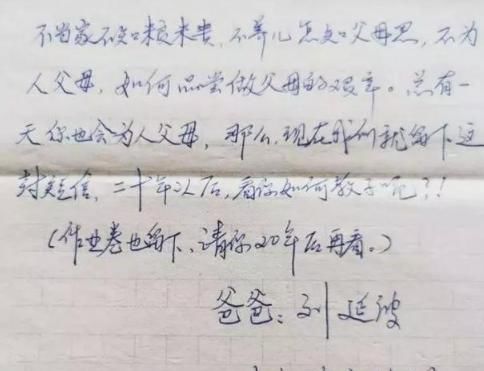 不当家不知柴米贵，不养儿怎知父母恩，不为
人父母，如何品尝做父母的艰辛。总有一
天你也会为人父母，那么，现在我们就留下这
封短信，二十年以后，看你如何教子呢？！
（作业卷也留下、请你20年后再看。）
爸爸：刘延波